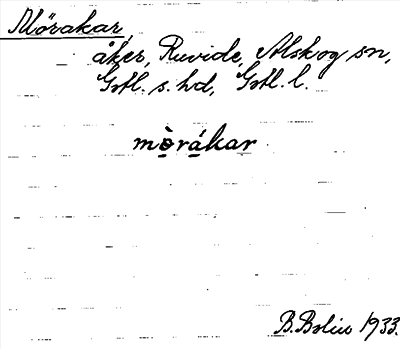 Mörakar,
åker, Ruvide, Alskog sn,
Gotl. s. hd, Gotl. l.
mə̤̀rá̤kar
B. Bolin 1933.